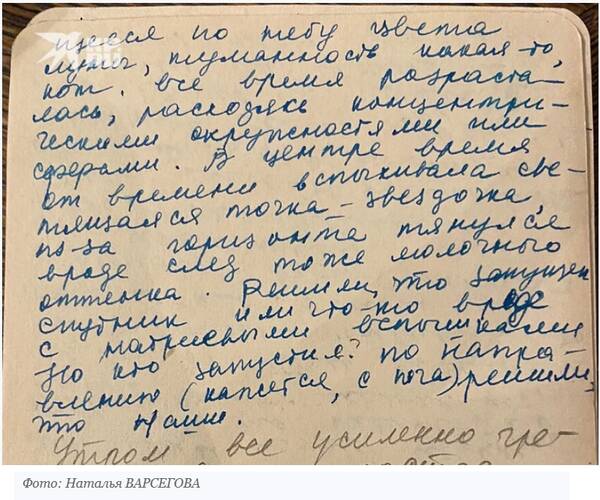 щееся по небу цвета
луны, туманность какая-то,
кот. все время разраста-
лась, расходясь концентри-
ческими окружностями или
сферами. В центре время
от времени вспыхивала све-
тящаяся точка-звездочка,
из-за горизонта тянулся
вроде след тоже молочного
оттенка. Решили, что запущен
спутник или что-то вроде
с натриевыми вспышками
Но кто запустил? по напра-
влению (кажется, с юга) решили,
что наши.
Утром все усиленно гре-
Фото: Наталья ВАРСЕГОВА